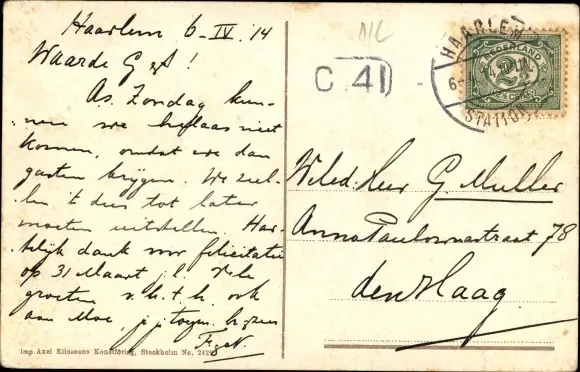 Haarlem 6-IV '14
Waarde G !
As. Zondag kun-
nen we helaas niet
komen, omdat we dan
gasten krijgen. We zul-
len 't dus tot later
moeten uitstellen. Har-
telijk dank voor felicitatie
op 31 Maart j.l. Vele
groeten v.h.t.h. ook
aan Moe,
Imp. Axel Eliassons Konstförlag, Stockholm No. 242
C 41
HAARLEM
STATION
NEDERLAND
2½
W.Led. Heer G. Muller
Anna Paulownastraat 78
den Haag